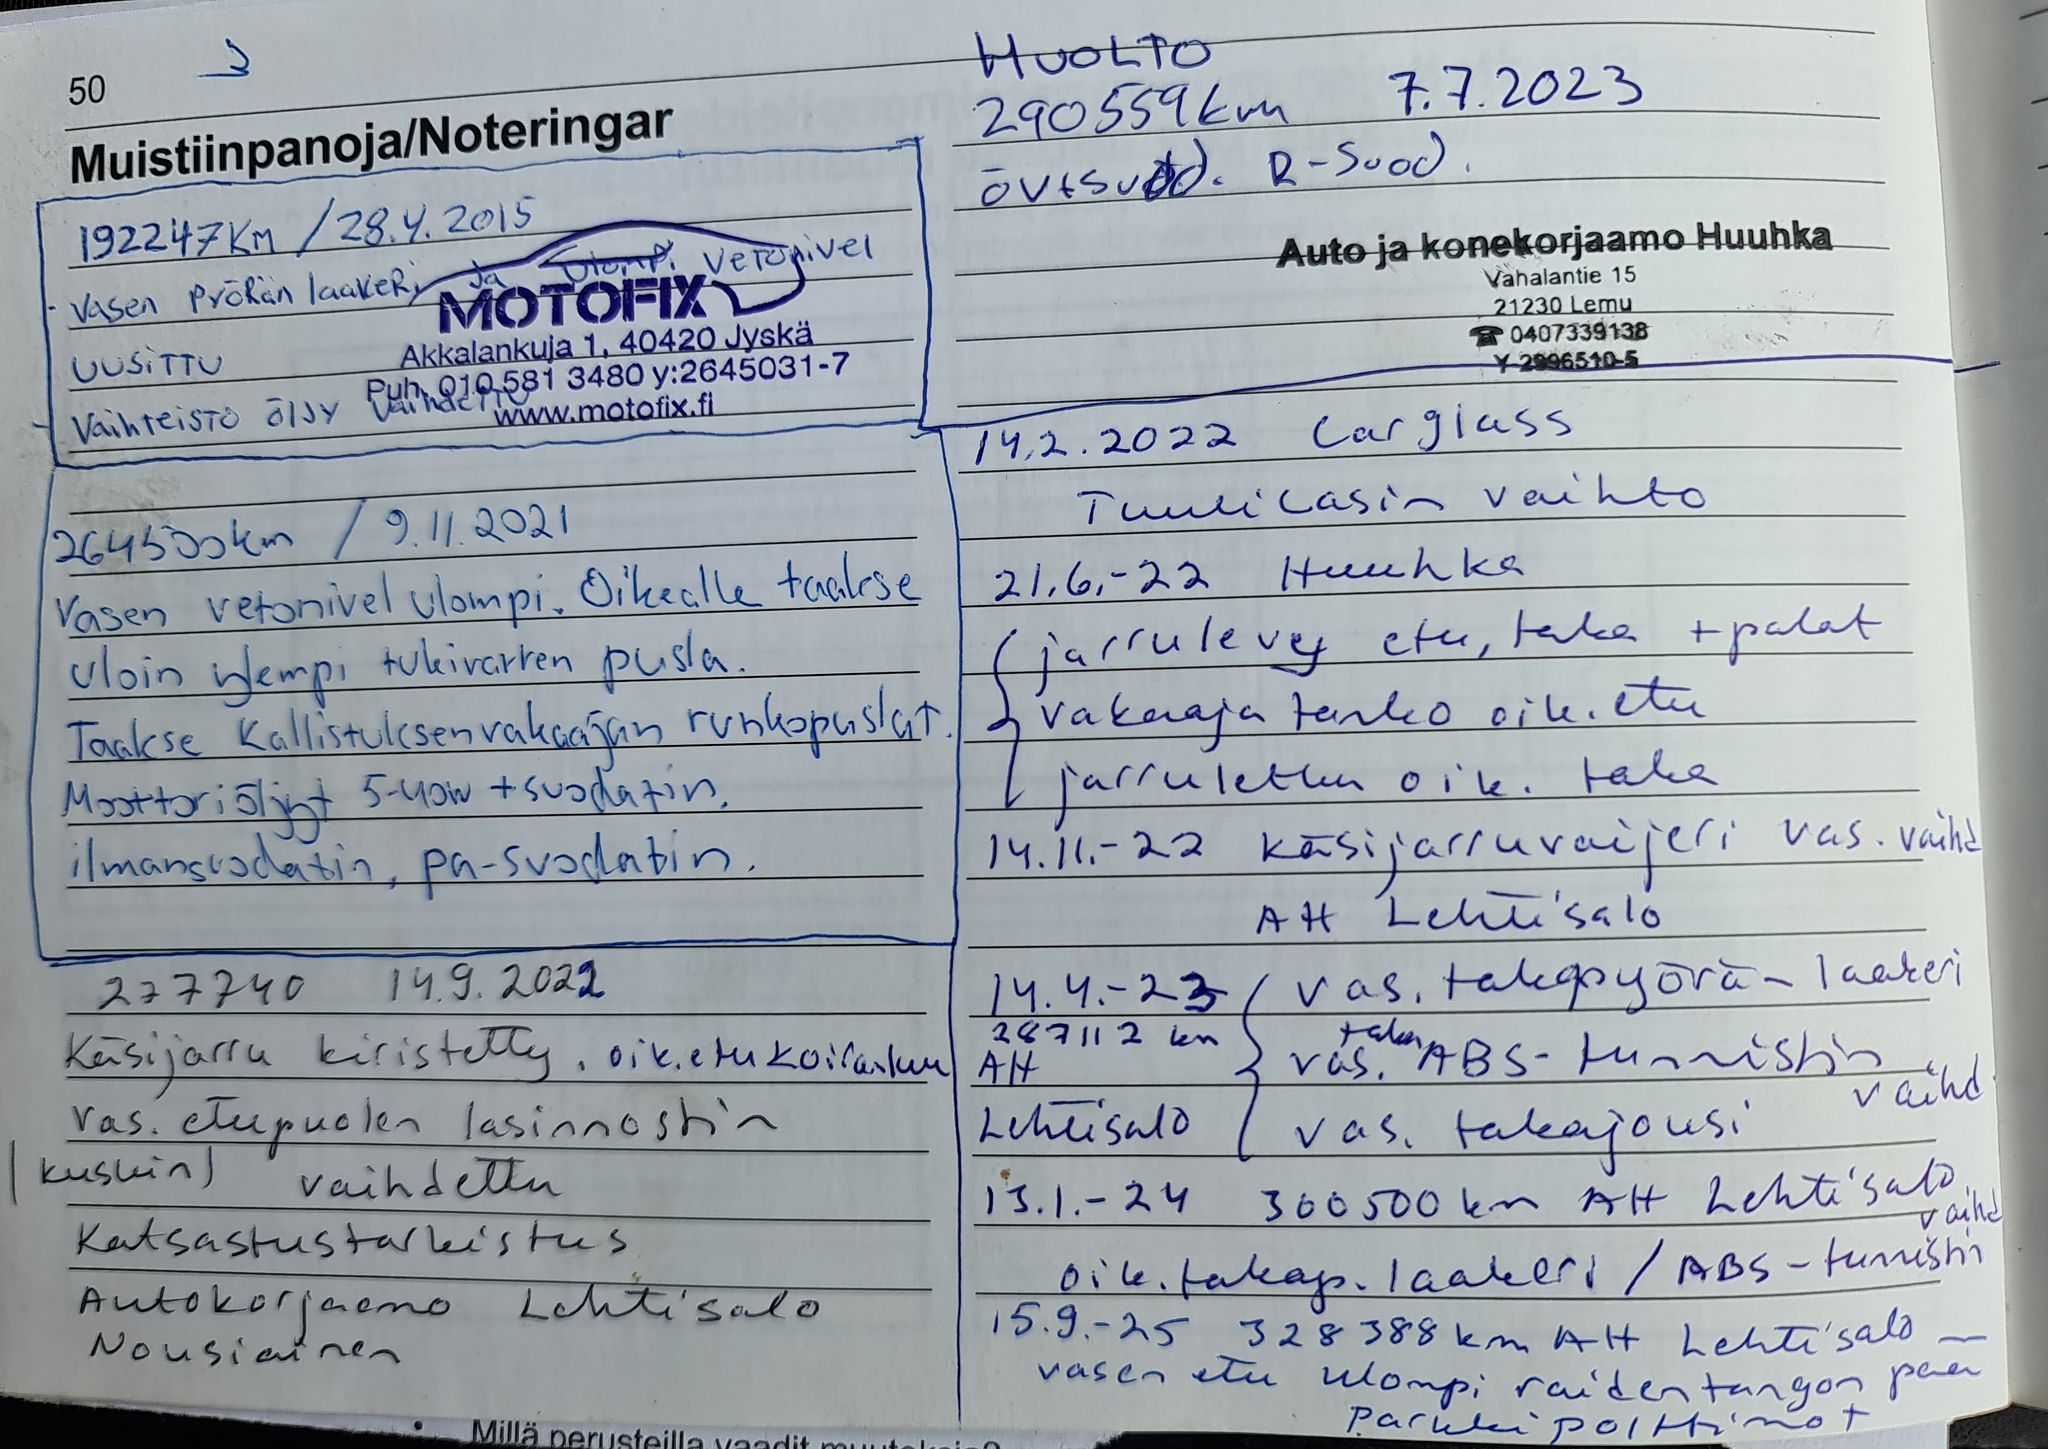 50
Muistiinpanoja/Noteringar
192247Km /28.4.2015
- Vasen pyörän laakeri ja ulompi vetonivel
UUSITTU
- Vaihteisto öljy vaihdettu
MOTOFIX
Akkalankuja 1, 40420 Jyskä
Puh. 010 581 3480 y:2645031-7
www.motofix.fi
264500km / 9.11.2021
Vasen vetonivel ulompi. Oikealle taakse
uloin ylempi tukivarren pusla.
Taakse kallistuksenvakaajan runkopuslat.
Moottoriöljyt 5-40w + suodatin.
ilmansuodatin, pa-suodatin.
277740 14.9.2022
Käsijarru kiristetty. oik. etu koiranluu
vas. etupuolen lasinnostin
(kuskin) vaihdettu
Katsastustarkistus
Autokorjaamo Lehtisalo
Nousiainen
HUOLTO
290559km 7.7.2023
öv+suod. R-Suod.
Auto ja konekorjaamo Huuhka
Vahalantie 15
21230 Lemu
☎ 0407339138
Y 2996510-5
14.2.2022 Carglass
Tuulilasin vaihto
21.6.-22 Huuhka
jarrulevyj etu, taka + palat
vakaajatanko oik. etu
jarruletku oik. taka
14.11.-22 Käsijarruvaijeri vas. vaihd
AH Lehtisalo
14.4.-23 vas. takapyörä-laakeri
287112 km vas. taka ABS-tunnistin
AH vaihd.
Lehtisalo vas. takajousi
13.1.-24 300500 km AH Lehtisalo
vaihd
oik. takap. laakeri / ABS-tunnistin
15.9.-25 328388 km AH Lehtisalo —
vasen etu ulompi raidetangon pää
Parkkipolttimot
Millä perusteilla vaadit muutoksia?